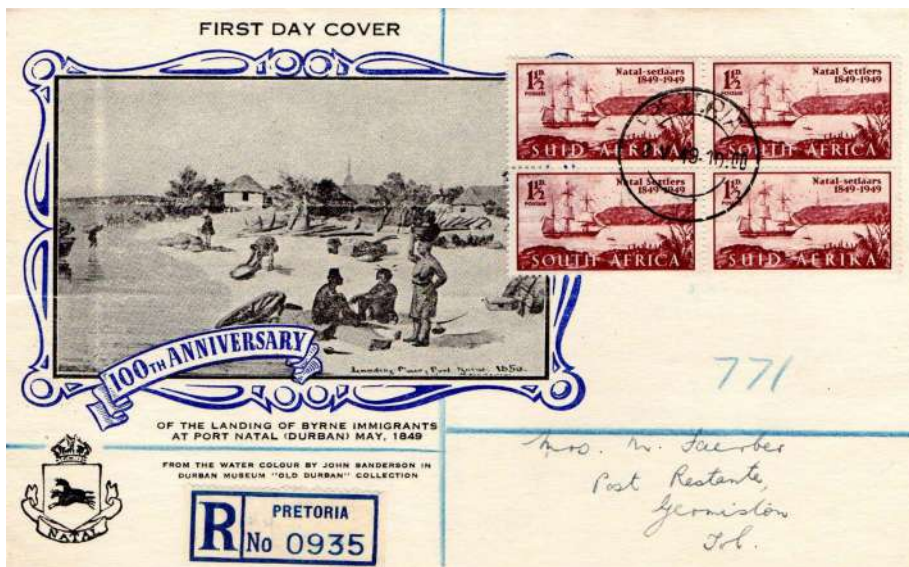 FIRST DAY COVER
1½D. Natal-setlaars
POSSEEL 1849-1949
SUID-AFRIKA
1½D. Natal Settlers
POSTAGE 1849-1949
SOUTH AFRICA
1½D. Natal Settlers
POSTAGE 1849-1949
SOUTH AFRICA
1½D. Natal-setlaars
POSSEEL 1849-1949
SUID-AFRIKA
Landing Place, Port Natal. 1850.
100TH ANNIVERSARY
OF THE LANDING OF BYRNE IMMIGRANTS
AT PORT NATAL (DURBAN) MAY, 1849
FROM THE WATER COLOUR BY JOHN SANDERSON IN
DURBAN MUSEUM "OLD DURBAN" COLLECTION
NATAL
R PRETORIA
No 0935
771
Mrs. M. Faerber
Post Restante,
Germiston